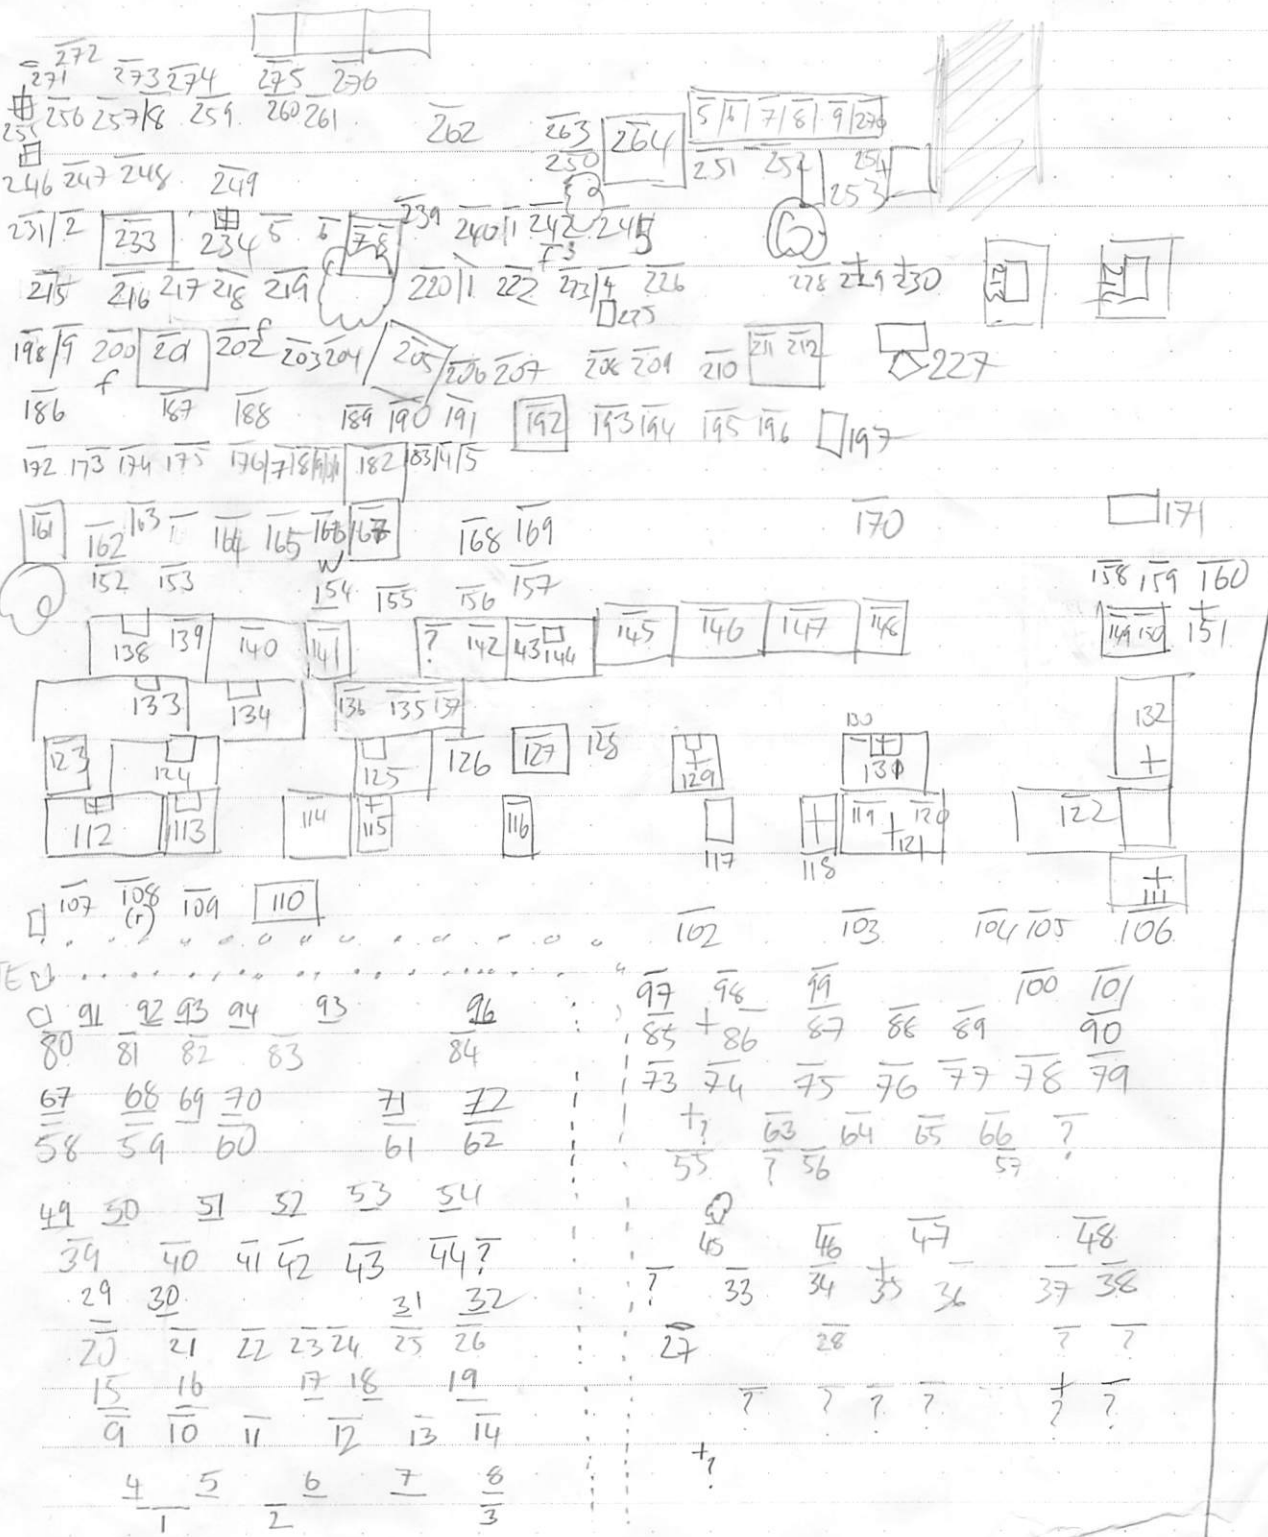 272
271 273 274 275 276
256 257/8 259 260 261
255 262 263 264 5/6/7/8/9/270
250 251 252 254
246 247 248 249 253
239
231/2 233 234 5 6 7 8 240/1 242 245
f 3
215 216 217 218 219 220/1 222 223/4 226 228 229 230 213 214
225
198/9 200 201 202 f 203 204 205 206 207 208 209 210 211 212 227
f
186 187 188 189 190 191 192 193 194 195 196 197
172 173 174 175 176/7/8/9 182 183/4/5
161 162 163 164 165 166 167 168 169 170 171
W
152 153 154 155 156 157 158 159 160
138 139 140 141 ? 142 143 144 145 146 147 148 149 150 151
133 134 136 135 137 132
130
123 124 125 126 127 128 129 131
112 113 114 115 116 117 118 119 120 121 122
111
107 108 109 110
(r)
102 103 104 105 106
TE
97 98 99 100 101
91 92 93 94 93 96 85 86 87 88 89 90
80 81 82 83 84
73 74 75 76 77 78 79
67 68 69 70 71 72
? 63 64 65 66 ?
58 59 60 61 62 55 ? 56 57
49 50 51 52 53 54
45 46 47 48
39 40 41 42 43 44 ? ? 33 34 35 36 37 38
29 30 31 32
20 21 22 23 24 25 26 27 28 ? ?
15 16 17 18 19
? ? ? ? ? ?
9 10 11 12 13 14
?
4 5 6 7 8
1 2 3